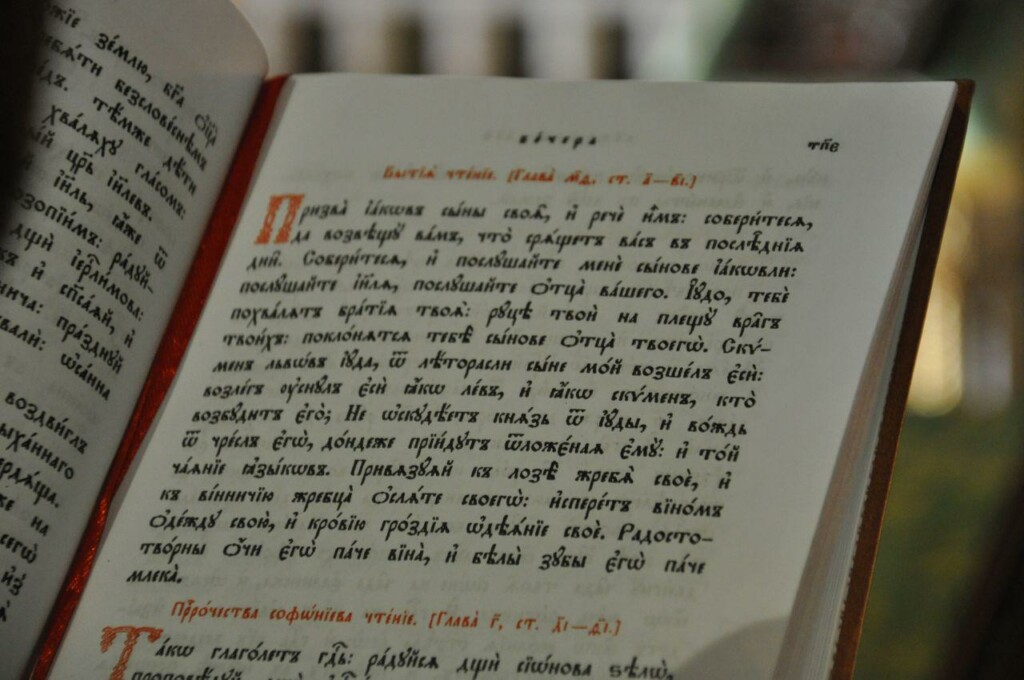 жїе зе́млю, бг҃а ѻ҆ц҃а
безслове́снѣмъ
тѣ́мже дѣ́ти
хвалѧ́хꙋ гла́сомъ:
цр҃ь і҆и҃левъ.
і҆и҃ль, ꙗ҆́же ѿ
ра́дꙋй-
дщѝ і҆ерⷭ҇ли́мова:
и҆ сп҃са́ѧй, и҆
пра́зднꙋй
ѡ҆са́нна
воздви́глъ
на
сегѡ̀
и҆з̾
ве́чера
тп҃в
Бытїѧ̀ чте́нїе. [Глава̀ м҃д, ст. а҃—в҃і.]
Призва̀ і҆а́кѡвъ сы́ны своѧ̑, и҆ речѐ и҆̀мъ: собери́тесѧ,
да возвѣщꙋ̀ ва́мъ, что̀ срѧ́щетъ ва́съ въ послѣ̑днїѧ
дни̑. Собери́тесѧ, и҆ послꙋ́шайте менѐ сы́нове і҆а́кѡвли:
послꙋ́шайте і҆и҃лѧ, послꙋ́шайте ѻ҆тца̀ ва́шего. І҆ꙋ́до, тебѐ
похва́лѧтъ бра́тїѧ твоѧ̑: рꙋ́цѣ твоѝ на плещꙋ̀ вра̑гъ
твои́хъ: покло́нѧтсѧ тебѣ̀ сы́нове ѻ҆тца̀ твоегѡ̀. Скѵ́-
менъ льво́въ і҆ꙋ́да, ѿ лѣ́торасли сы́не мо́й возше́лъ є҆сѝ:
возле́гъ ᲂу҆снꙋ́лъ є҆сѝ ꙗ҆́кѡ ле́въ, и҆ ꙗ҆́кѡ скѵ́менъ, кто̀
возбꙋ́дитъ є҆го̀; Не ѡ҆скꙋдѣ́етъ кнѧ́зь ѿ і҆ꙋ́ды, и҆ во́ждь
ѿ чре́слъ є҆гѡ̀, до́ндеже прїи́дꙋтъ ѿложе́наѧ є҆мꙋ̀: и҆ то́й
ча́ѧнїе ꙗ҆зы́кѡвъ. Привѧ́зꙋѧй къ лозѣ̀ жребѧ̀ своѐ, и҆
къ ви́нничїю жребца̀ ѻ҆слѧ́те своегѡ̀: и҆спере́тъ вїно́мъ
ѻ҆де́ждꙋ свою̀, и҆ кро́вїю гро́здїѧ ѡ҆дѣѧ́нїе своѐ. Радосто-
тво́рны ѻ҆́чи є҆гѡ̀ па́че вїна̀, и҆ бѣлы̀ зꙋ́бы є҆гѡ̀ па́че
млека̀.
Прⷪ҇ро́чества софо́нїева чте́нїе. [Глава̀ г҃, ст. д҃і—ѳ҃і.]
Та́кѡ глаго́летъ гдⷭ҇ь: ра́дꙋйсѧ дщѝ сїѡ́нова ѕѣлѡ̀,